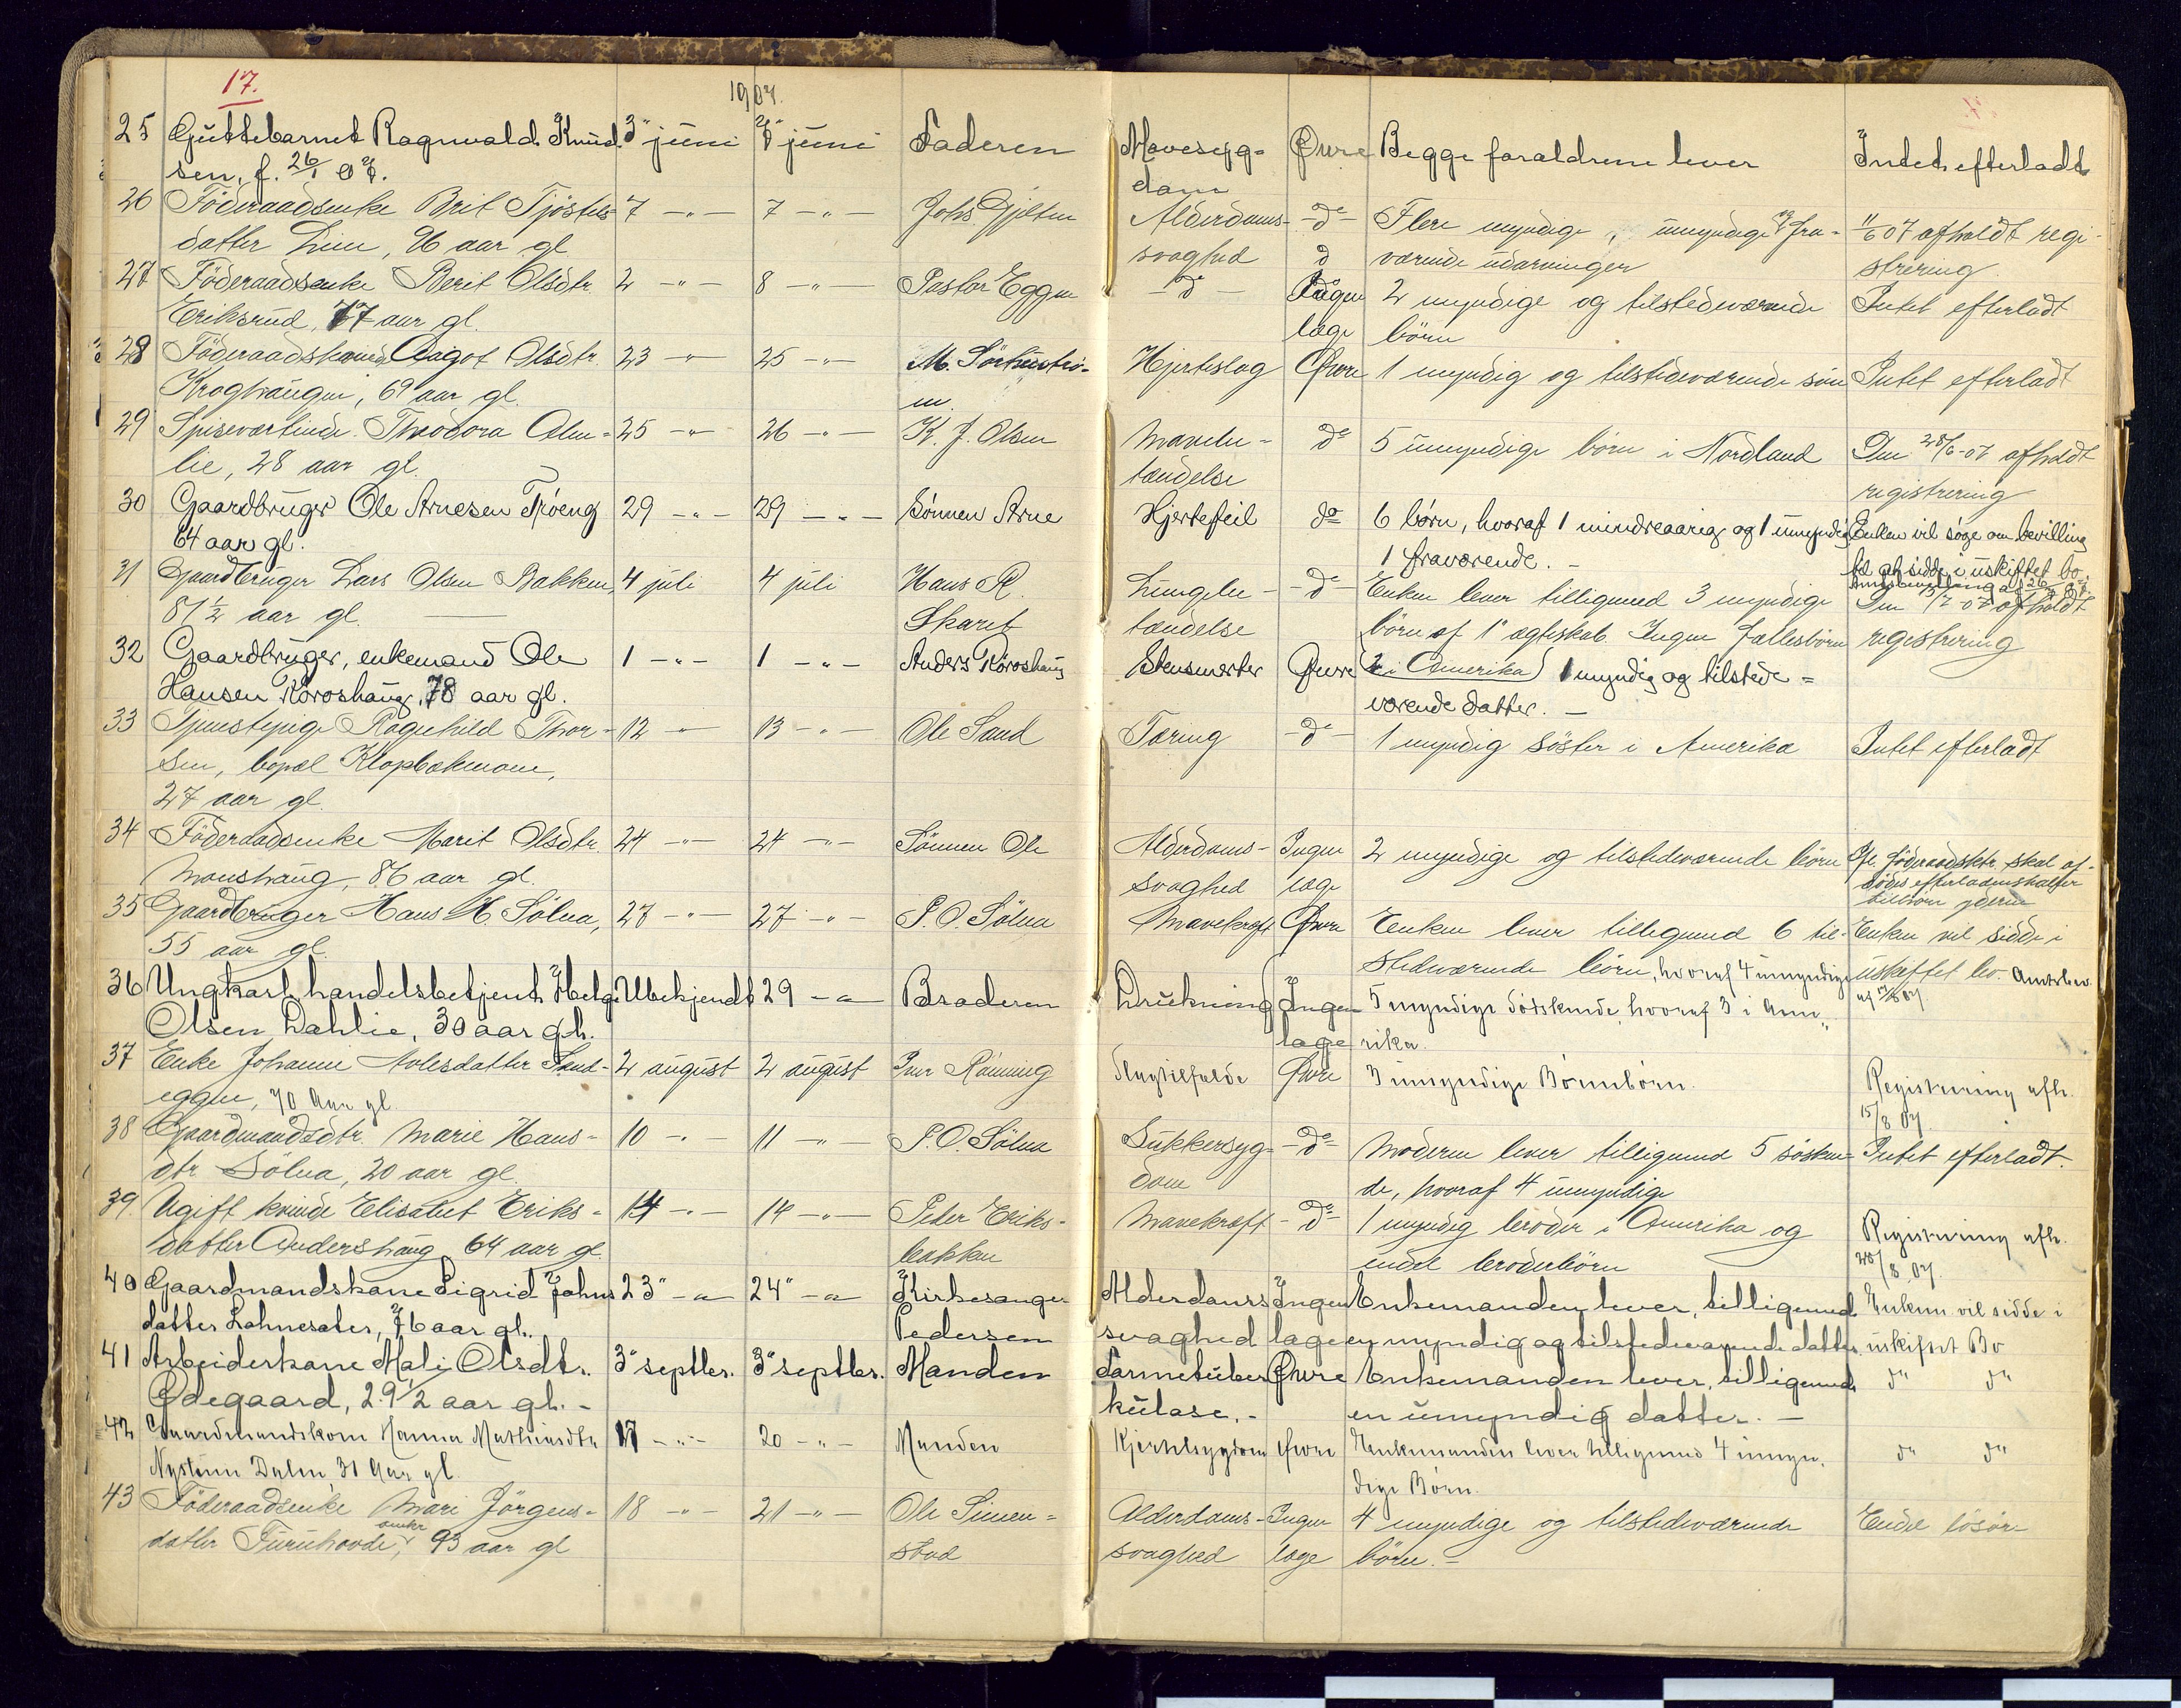 17.
1907.
25 Guttebarnet Ragnvald Knud- 3" juni 7" juni Faderen Mavesyg- Øvre Begge foraldrene lever Intet efterladt
sen, f. 26/1 07. dom
26 Föderaadsenke Brit Tjöstels- 7 -"- 7 -"- Johs. Gjelten Alderdoms- do Flere myndige, umyndige og fra- 11/6 07 afholdt regi-
datter Lien, 96 aar gl svaghed værende udarvinger strering
27 Föderaadsenke Berit Olsdtr. 2 -"- 8 -"- Pastor Eggen -do- Ingen 2 myndige og tilstedeværende Intet efterladt
Eriksrud, 77 aar gl. læge börn
28 Föderaadskone Aagot Olsdtr. 23 -"- 25 -"- M. Sörhuströ- Hjerteslag Øvre 1 myndig og tilstedeværende sön Intet efterladt
Kroghaugen, 69 aar gl. m.
29 Spiseværtinde Theodora Alm- 25 -"- 26 -"- K. J. Olsen Mavebe- do 5 umyndige börn i Nordland Den 28/6-07 afholdt
lie, 28 aar gl. tændelse registrering
30 Gaardbruger Ole Arnesen Tröeng 29 -"- 29 -"- Sönnen Arne Hjertefeil do 6 börn, hvoraf 1 mindreaarig og 1 umyndig Enken vil söge om bevilling
64 aar gl. 1 fraværende. - til at sidde i uskiftet bo
31 Gaardbruger Lars Olsen Bakken, 4 juli 4 juli Hans R. Lungebe- -do- Enken lever tilligemed 3 myndige Den 15/7-07 afholdt
81 1/2 aar gl. Skaret tændelse börn af 1" ægteskab. Ingen fællesbörn registrering
32 Gaardbruger, enkemand Ole 1 -"- 1 -"- Anders Koroshaug Stensmerter Øvre (2 i Amerika) 1 myndig og tilstede-
Hansen Koroshaug, 78 aar gl. værende datter. -
33 Tjenestepige Ragnhild Thor- 12 -"- 13 -"- Ole Sand Tæring -do- 1 myndig söster i Amerika Intet efterladt
sen, bopæl Klopbakmoen,
27 aar gl.
34 Föderaadsenke Marit Olsdtr. 24 -"- 24 -"- Sönnen Ole Alderdoms- Ingen 2 myndige og tilstedeværende börn
Monshaug, 86 aar gl. svaghed læge
35 Gaardbruger Hans H. Sölna, 27 -"- 27 -"- P. O. Sölna Mavekræft Øvre Enken lever tilligemed 6 til- Enken vil sidde i
55 aar gl. stedværende börn, hvoraf 4 umyndige uskiftet bo. Amtsbev.
36 Ungkarl, handelsbetjent Helge Ubekjendt 29 -"- Broderen Drukning Ingen 5 myndige södskende, hvoraf 3 i Ame-
Olsen Dahlie, 30 aar gl. læge rika.
37 Enke Johanne Avlesdatter Sand- 2 august 2 august Iver Rönning Slagtilfælde Øvre 3 umyndige Börnebörn. Registrering afh.
eggen, 70 Aar gl. 15/8 07.
38 Gaardmandsdtr. Marie Hans- 10 -"- 11 -"- P. O. Sölna Sukkersyg- -do- Moderen lever tilligemed 5 sösken- Intet efterladt.
dtr Sölna, 20 aar gl. dom de, hvoraf 4 umyndige
39 Ugift kvinde Elisabet Eriks- 14 -"- 14 -"- Peder Eriks- Mavekræft -do- 1 myndig broder i Amerika og Registrering afh.
datter Andershaug 64 aar gl. bakken endel broderbörn 28/8 07.
40 Gaardmandskone Sigrid Johns 23" -"- 24" -"- Kirkesanger Alderdoms Ingen Enkemanden lever, tilligemed Enkem vil sidde i
datter Lohnesater, 76 aar gl. Pedersen svaghed læge en myndig og tilstedeværende datter. uskiftet Bo
41 Arbeiderkone Mali Olsdtr. 3" septbr. 3" septbr. Manden Tarmetuber Øvre Enkemanden lever, tilligemed d" d"
Ödegaard, 29 1/2 aar gl. - kulose. - en umyndig datter. -
42 Gaardmandskone Hanna Mathiasdtr 17 -"- 20 -"- Manden Hjertesygdom Øvre Enkemanden lever tilligemed 4 umyn- d" d"
Nystuen Dalen 31 Aar gl. dige Börn.
43 Föderaadsenke Mari Jörgens- 18 -"- 21 -"- Ole Simen- Alderdoms- Ingen 4 myndige og tilstedeværende Endel lösöre
datter Furuhovde, 93 aar gl stad svaghed læge börn. -